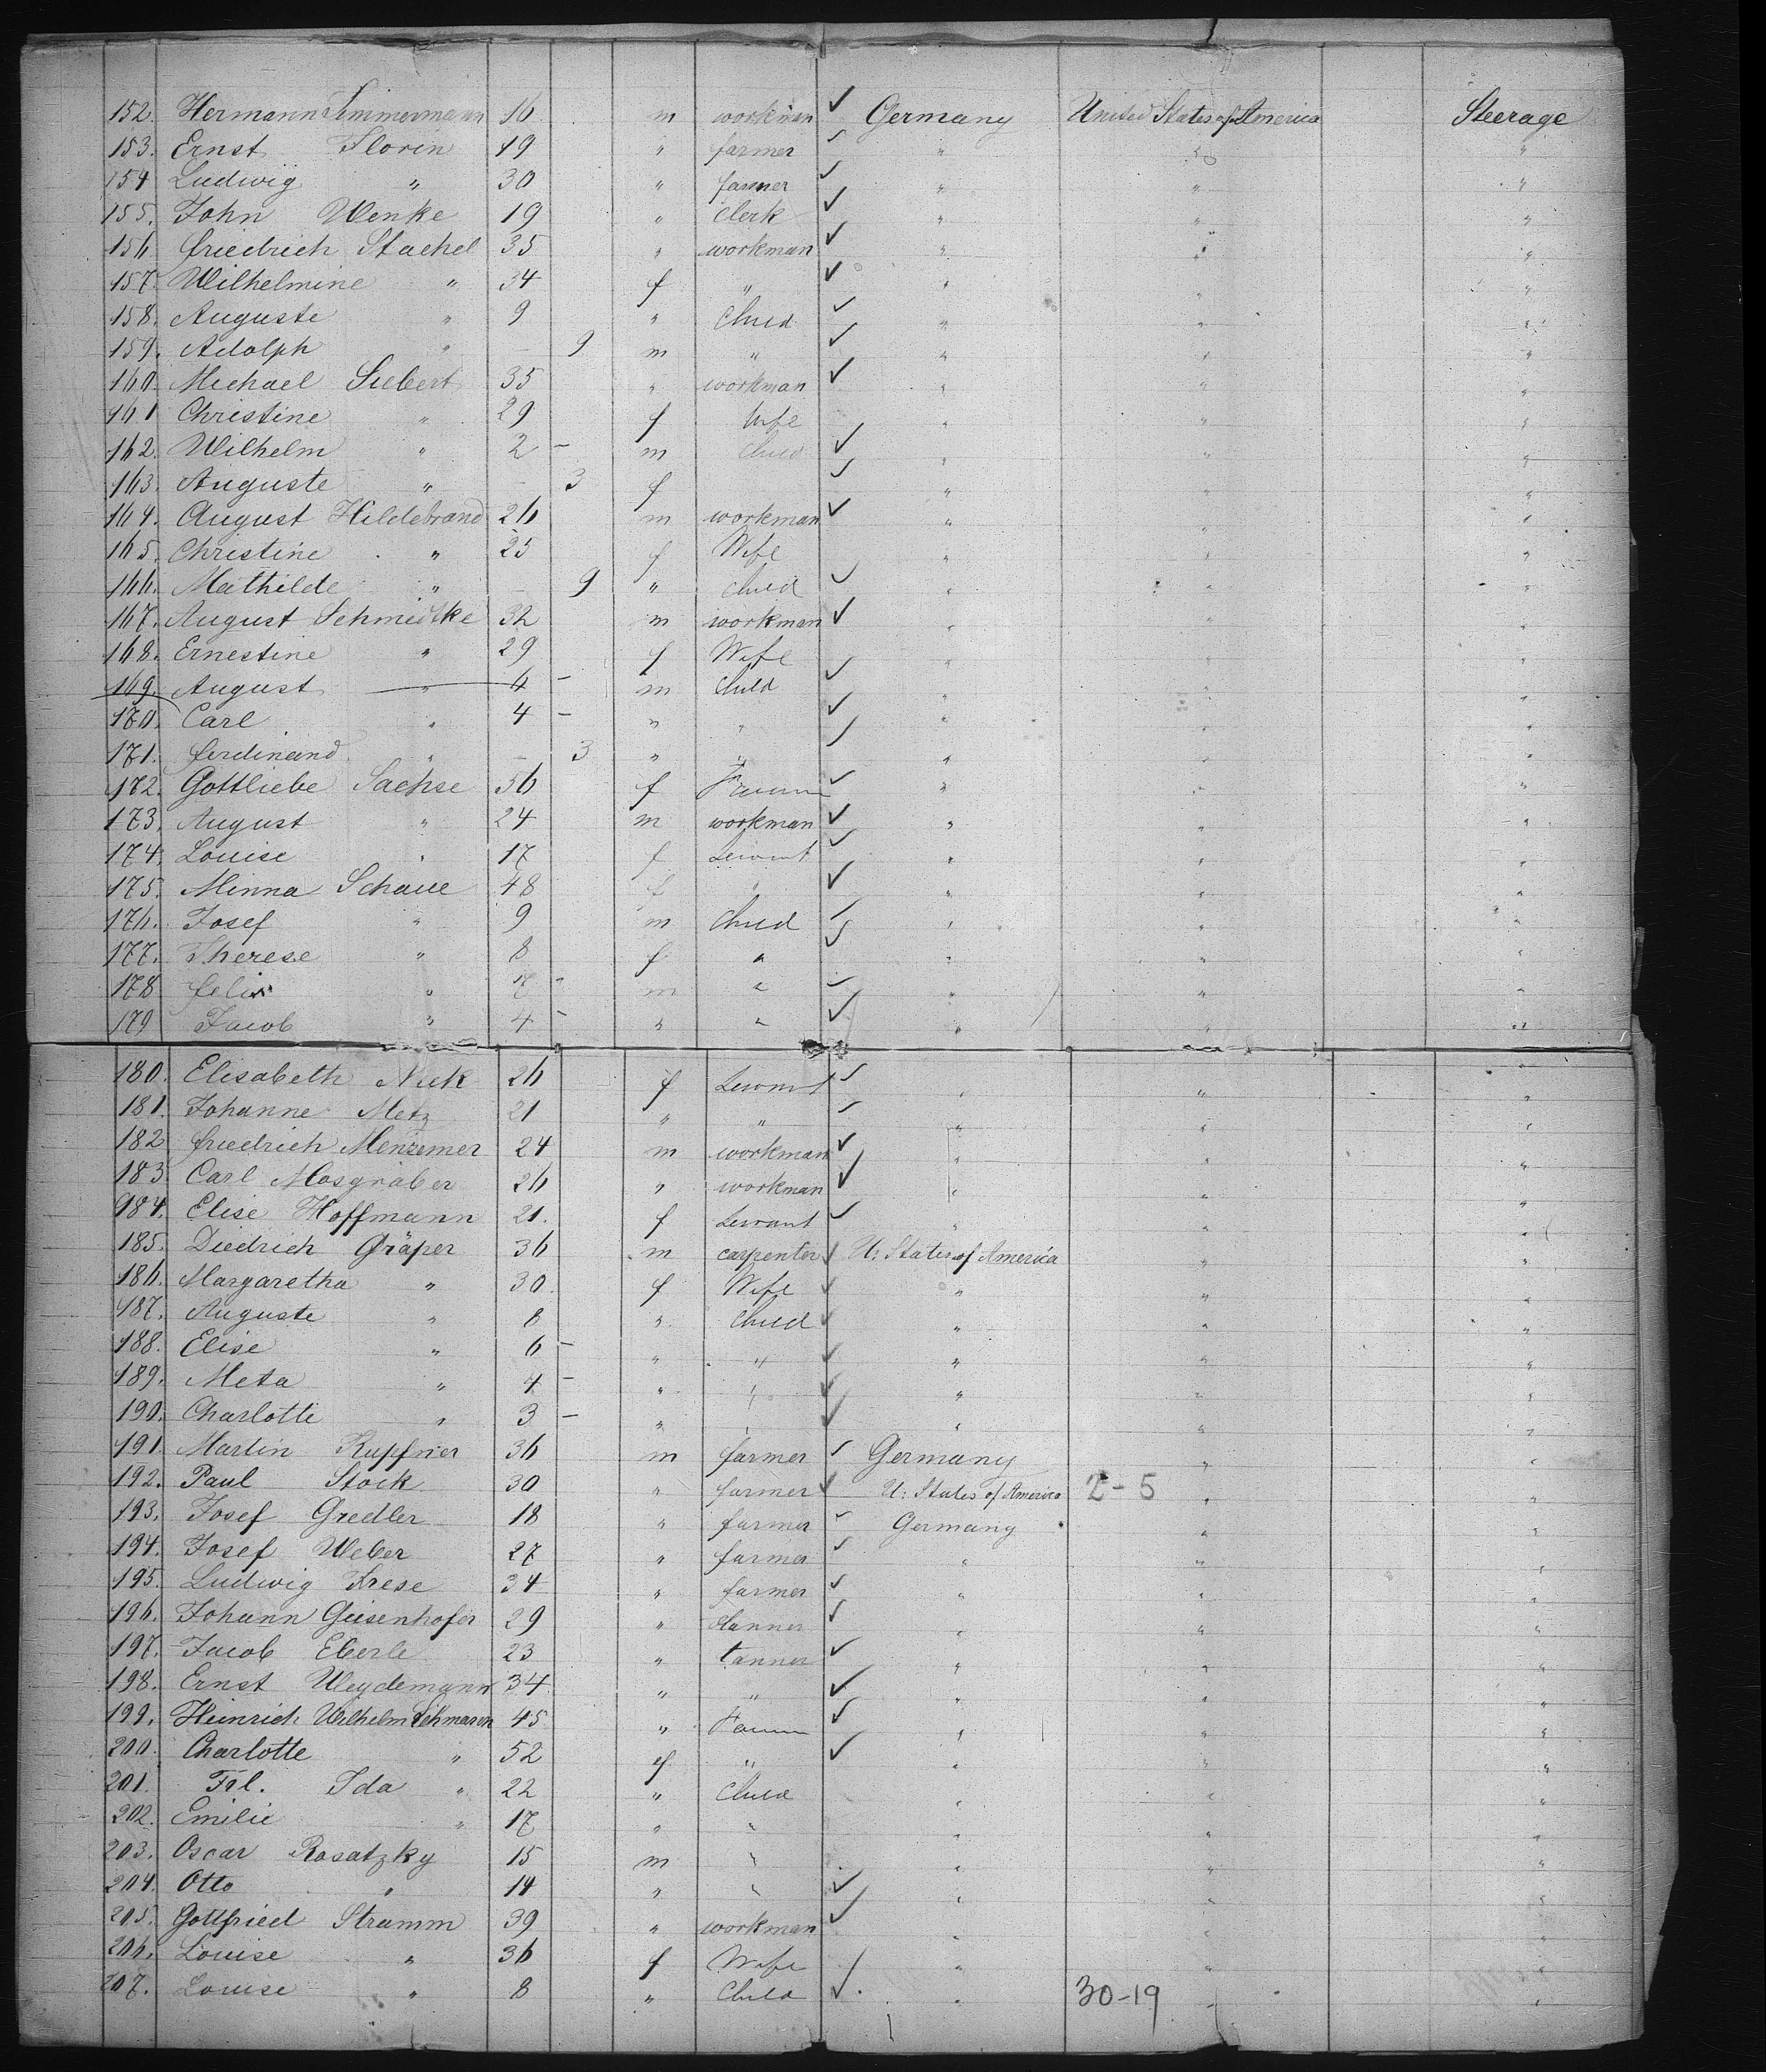 152. Hermann Zimmermann 16 m workman ✓ Germany United States of America Steerage
153. Ernst Florin 19 " farmer ✓ " " "
154 Ludwig " 30 " farmer ✓ " " "
155. John Wenke 19 " Clerk ✓ " " "
156 Friedrich Stachel 35 " workman ✓ " " "
157. Wilhelmine " 34 f " ✓ " " "
158. Auguste " 9 " Child ✓ " " "
159. Adolph " - 9 m " ✓ " " "
160. Michael Siebert 35 " workman ✓ " " "
161 Christine " 29 f Wife " " "
162. Wilhelm " 2 - m Child ✓ " " "
163. Auguste " - 3 f ✓ " " "
164. August Hildebrand 26 m workman ✓ " " "
165. Christine " 25 f Wife " " "
166. Mathilde " - 9 " Child ✓ " " "
167. August Schmidtke 32 m workman ✓ " " "
168. Ernestine " 29 f Wife " " "
169. August " 4 - m Child ✓ " " "
170. Carl " 4 - " " ✓ " " "
171. Ferdinand " - 3 " " ✓ " " "
172. Gottliebe Sachse 56 f ✓ " " "
173. August " 24 m workman ✓ " " "
174. Louise " 17 f Servant ✓ " " "
175. Minna Schaue 48 f " ✓ " " "
176. Josef " 9 m Child ✓ " " "
177. Therese " 8 f " ✓ " " "
178 Felix " 7 - m " ✓ " " "
179 Jacob " 4 - " " ✓ " " "
180. Elisabeth Nick 26 f Servant ✓ " " "
181. Johanne Metz 21 " " ✓ " " "
182 Friedrich Menzemer 24 m workman ✓ " " "
183 Carl Mosgraber 26 " workman ✓ " " "
184. Elise Hoffmann 21. f Servant ✓ " " "
185. Diedrich Gräper 36 m carpenter ✓ U: States of America " "
186. Margaretha " 30. f Wife ✓ " " "
187. Auguste " 8 " Child ✓ " " "
188. Elise " 6 - " " ✓ " " "
189. Meta " 4 - " " ✓ " " "
190. Charlotte " 3 - " " ✓ " " "
191. Martin Rupfner 36 m farmer ✓ Germany " "
192. Paul Stock 30 " farmer ✓ U: States of America 2-5 " "
193. Josef Gredler 18 " farmer ✓ Germany " "
194. Josef Weber 27 " farmer ✓ " " "
195. Ludwig Krese 34 " farmer ✓ " " "
196. Johann Geisenhofer 29 " tanner ✓ " " "
197. Jacob Eberle 23 " tanner ✓ " " "
198. Ernst Weydemann 34 " " ✓ " " "
199. Heinrich Wilhelm 45 " ✓ " " "
200. Charlotte " 52 f " ✓ " " "
201. Frl. Ida " 22 " Child " " "
202. Emilie " 17 " " " " "
203. Oscar Rosatzky 15 m " " " "
204. Otto " 14 " " ✓ " " "
205. Gottfried Stramm 39 " workman ✓ " " "
206. Louise " 36 f Wife ✓ " " "
207. Louise " 8 " Child ✓ " 30-19 " "